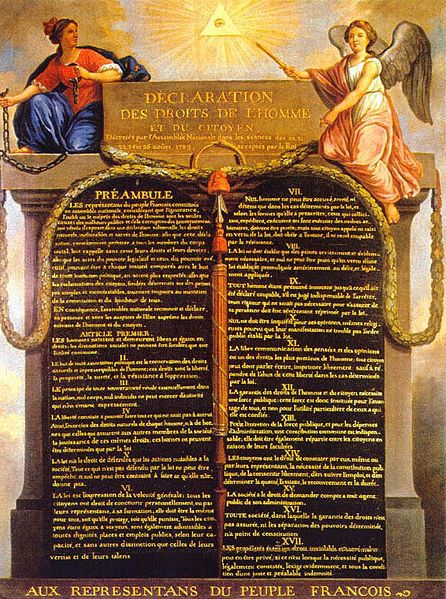 DÉCLARATION
DES DROITS DE L'HOMME
ET DU CITOYEN,
Décretés par l'Assemblée Nationale dans les séances des 20, 21,
23, 24 et 26 août 1789, acceptés par le Roi
PRÉAMBULE
LES représentans du peuple François, constitués
en assemblée nationale, considérant que l'ignorance,
l'oubli ou le mépris des droits de l'homme sont les seules
causes des malheurs publics et de la corruption des gouvernemens
ont résolu d'exposer dans une déclaration solemnelle, les droits
naturels, inaliénables et sacrés de l'homme; afin que cette décla-
ration, constamment présente à tous les membres du corps
social, leur rappelle sans cesse leurs droits et leurs devoirs;
afin que les actes du pouvoir législatif et ceux du pouvoir exé-
cutif, pouvant être à chaque instant comparés avec le but
de toute institution politique, en soient plus respectés; afin que
les réclamations des citoyens, fondées désormais sur des princi-
pes simples et incontestables, tournent toujours au maintien
de la constitution et du bonheur de tous.
EN conséquence, l'assemblée nationale reconnoit et déclare,
en présence et sous les auspices de l'Etre suprême les droits
suivans de l'homme et du citoyen.
ARTICLE PREMIER.
LES hommes naissent et demeurent libres et égaux en
droits. les distinctions sociales ne peuvent être fondées que sur
l'utilité commune.
II.
LE but de toute association politique est la conservation des droits
naturels et imprescriptibles de l'homme; ces droits sont la liberté,
la propriété, la sureté, et la résistance à l'oppression.
III.
LE principe de toute souveraineté réside essentiellement dans
la nation, nul corps, nul individu ne peut exercer d'autorité
qui n'en émane expressément.
IV.
LA liberté consiste à pouvoir faire tout ce qui ne nuit pas à autrui
Ainsi, l'exercice des droits naturels de chaque homme, n'a de bor-
nes que celles qui assurent aux autres membres de la société
la jouissance de ces mêmes droits; ces bornes ne peuvent
être déterminées que par la loi
V.
LA loi n'a le droit de défendre que les actions nuisibles à la
société. Tout ce qui n'est pas défendu par la loi ne peut être
empêché, et nul ne peut être contraint à faire ce qu'elle n'or-
donne pas.
VI.
LA loi est l'expression de la volonté générale; tous les
citoyens ont droit de concourir personnellement, ou par
leurs représentans, à sa formation; elle doit être la même
pour tous, soit qu'elle protege, soit qu'elle punisse, Tous les ci-
toyens étant égaux à ses yeux, sont également admissibles à
toutes dignités, places et emplois publics, selon leur ca-
pacité, et sans autres distinction que celles de leurs
vertus et de leurs talens
VII.
NUL homme ne peut être accusé, arreté ni
détenu que dans les cas déterminés par la loi, et
selon les formes qu'elle a prescrites, ceux qui sollici-
tent, expédient, exécutent ou font exécuter des ordres ar-
bitraires, doivent être punis; mais tout citoyen appelé ou saisi
en vertu de la loi, doit obéir à l'instant, il se rend coupable
par la résistance.
VIII.
LA loi ne doit établir que des peines strictement et évidemment
nécessaire, et nul ne peut être puni qu'en vertu d'une
loi établie et promulguée antérieurement au délit, et légale-
ment appliquée.
IX.
TOUT homme étant présumé innocent jusqu'à ce qu'il ait
été déclaré coupable, s'il est jugé indispensable de l'arrêter,
toute rigueur qui ne seroit pas nécessaire pour s'assurer de
sa personne doit être sévèrement réprimée par la loi.
X.
NUL ne doit être inquiété pour ses opinions, mêmes religi-
euses pourvu que leur manifestation ne trouble pas l'ordre
public établi par la loi.
XI.
LA libre communication des pensées et des opinions
est un des droits les plus précieux de l'homme; tout citoyen
peut donc parler écrire, imprimer librement; sauf à ré-
pondre de l'abus de cette liberté dans les cas déterminés
par la loi.
XII.
LA garantie des droits de l'homme et du citoyen nécessite
une force publique; cette force est donc instituée pour l'avan-
tage de tous, et non pour l'utilité particuliere de ceux a qui
elle est confiée.
XIII.
POUR l'entretien de la force publique, et pour les dépenses
d'administration, une contribution commune est indispen-
sable; elle doit être également répartie entre les citoyens en
raison de leurs facultés.
XIV.
LES citoyens ont le droit de constater par eux même ou
par leurs représentans, la nécessité de la contribution pub-
lique, de la consentir librement, d'en suivre l'emploi, et d'en
déterminer la quotité, l'assiette, le recouvrement et la durée.
XV.
LA société a le droit de demander compte a tout agent
public de son administration.
XVI.
TOUTE société, dans laquelle la garantie des droits n'est
pas assurée, ni les séparation des pouvoirs déterminée,
n'a point de constitution
XVII.
LES propriétés étant un droit inviolable et sacré, nul ne
peut en être privé, si ce n'est lorsque la nécessité publique,
légalement constatée, l'exige évidemment, et sous la condi-
tion d'une juste et préalable indemnité.
AUX REPRESENTANS DU PEUPLE FRANCOIS